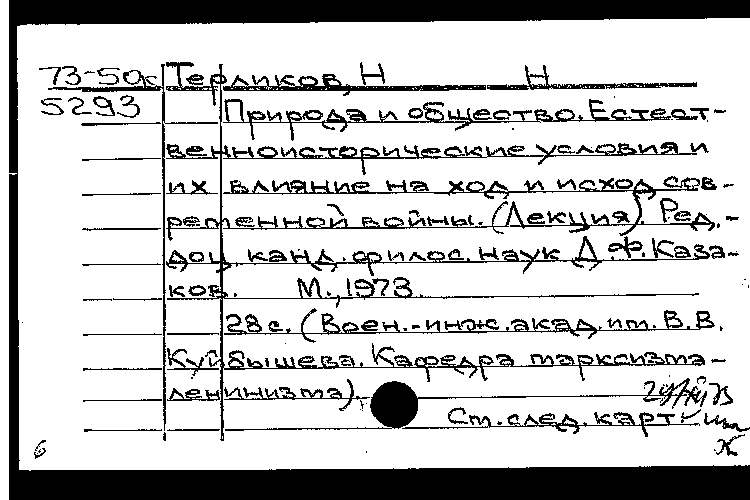 73-50к Терликов, Н Н
5293 Природа и общество. Естест-
венноисторические условия и
их влияние на ход и исход сов-
ременной войны. (Лекция) Ред.-
доц. канд. филос. наук Д.Ф. Каза-
ков. М., 1973.
28 с. (Воен.-инж. акад. им. В.В.
Куйбышева. Кафедра марксизма-
ленинизма).
Ст. след. карт.
6